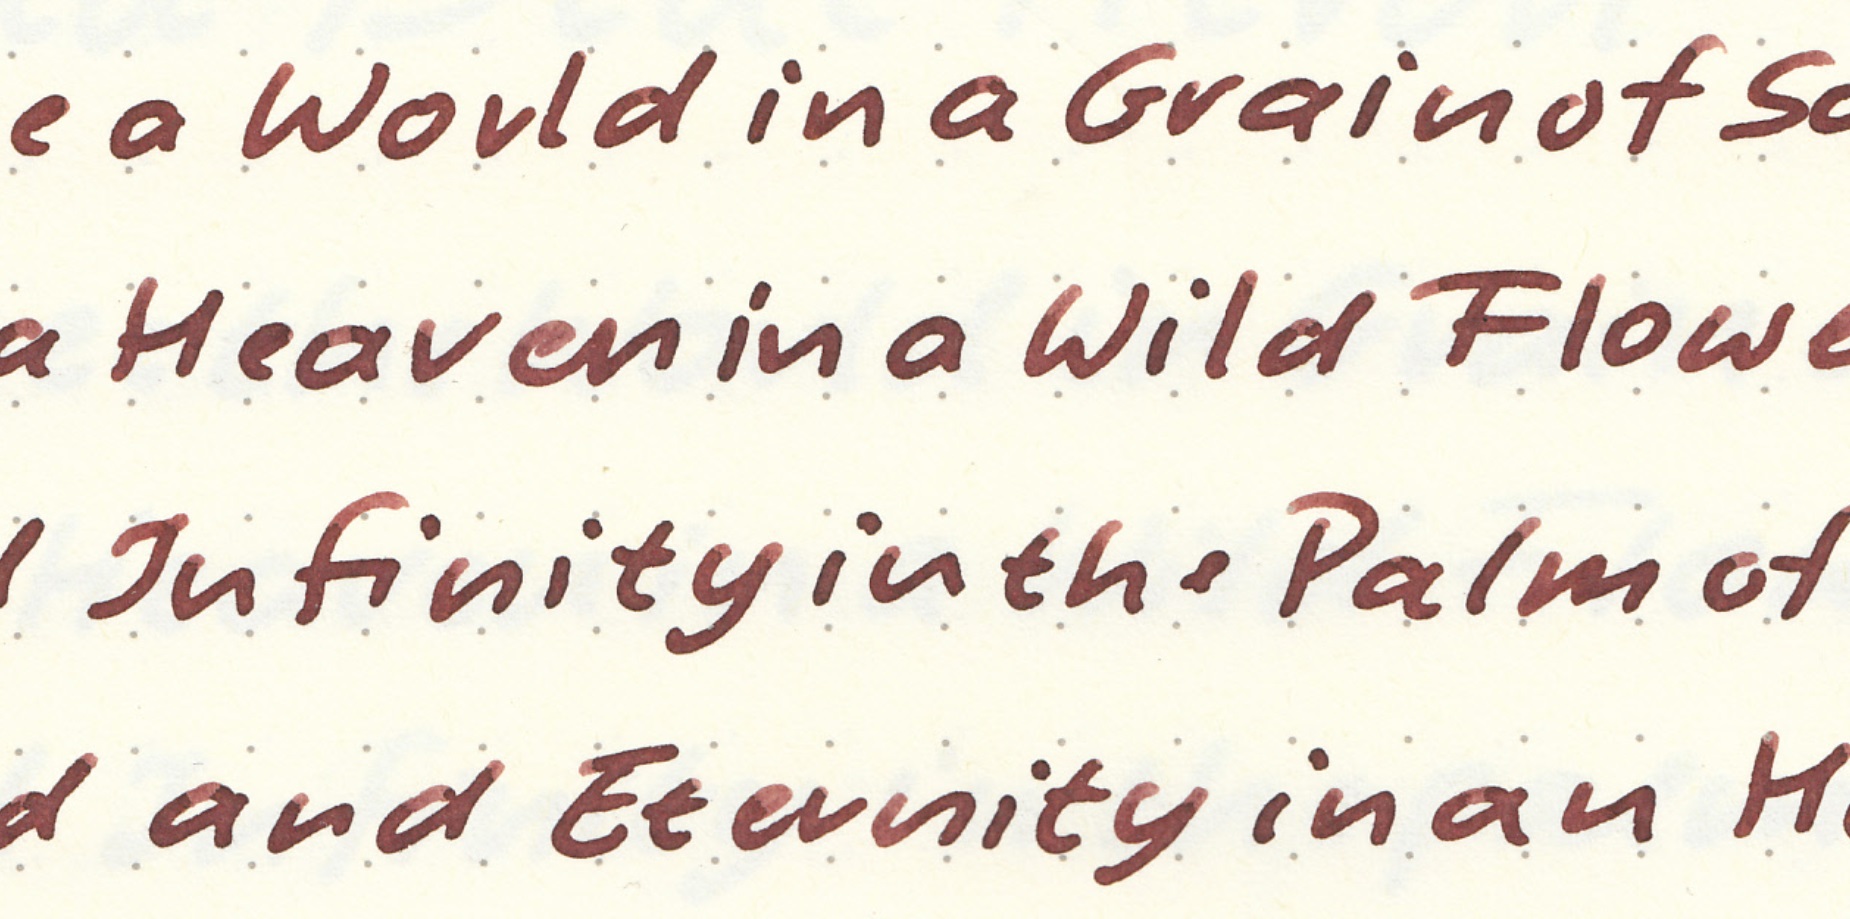 e a World in a Grain of Sa
a Heaven in a Wild Flowe
d Infinity in the Palm of
d and Eternity in an Ho